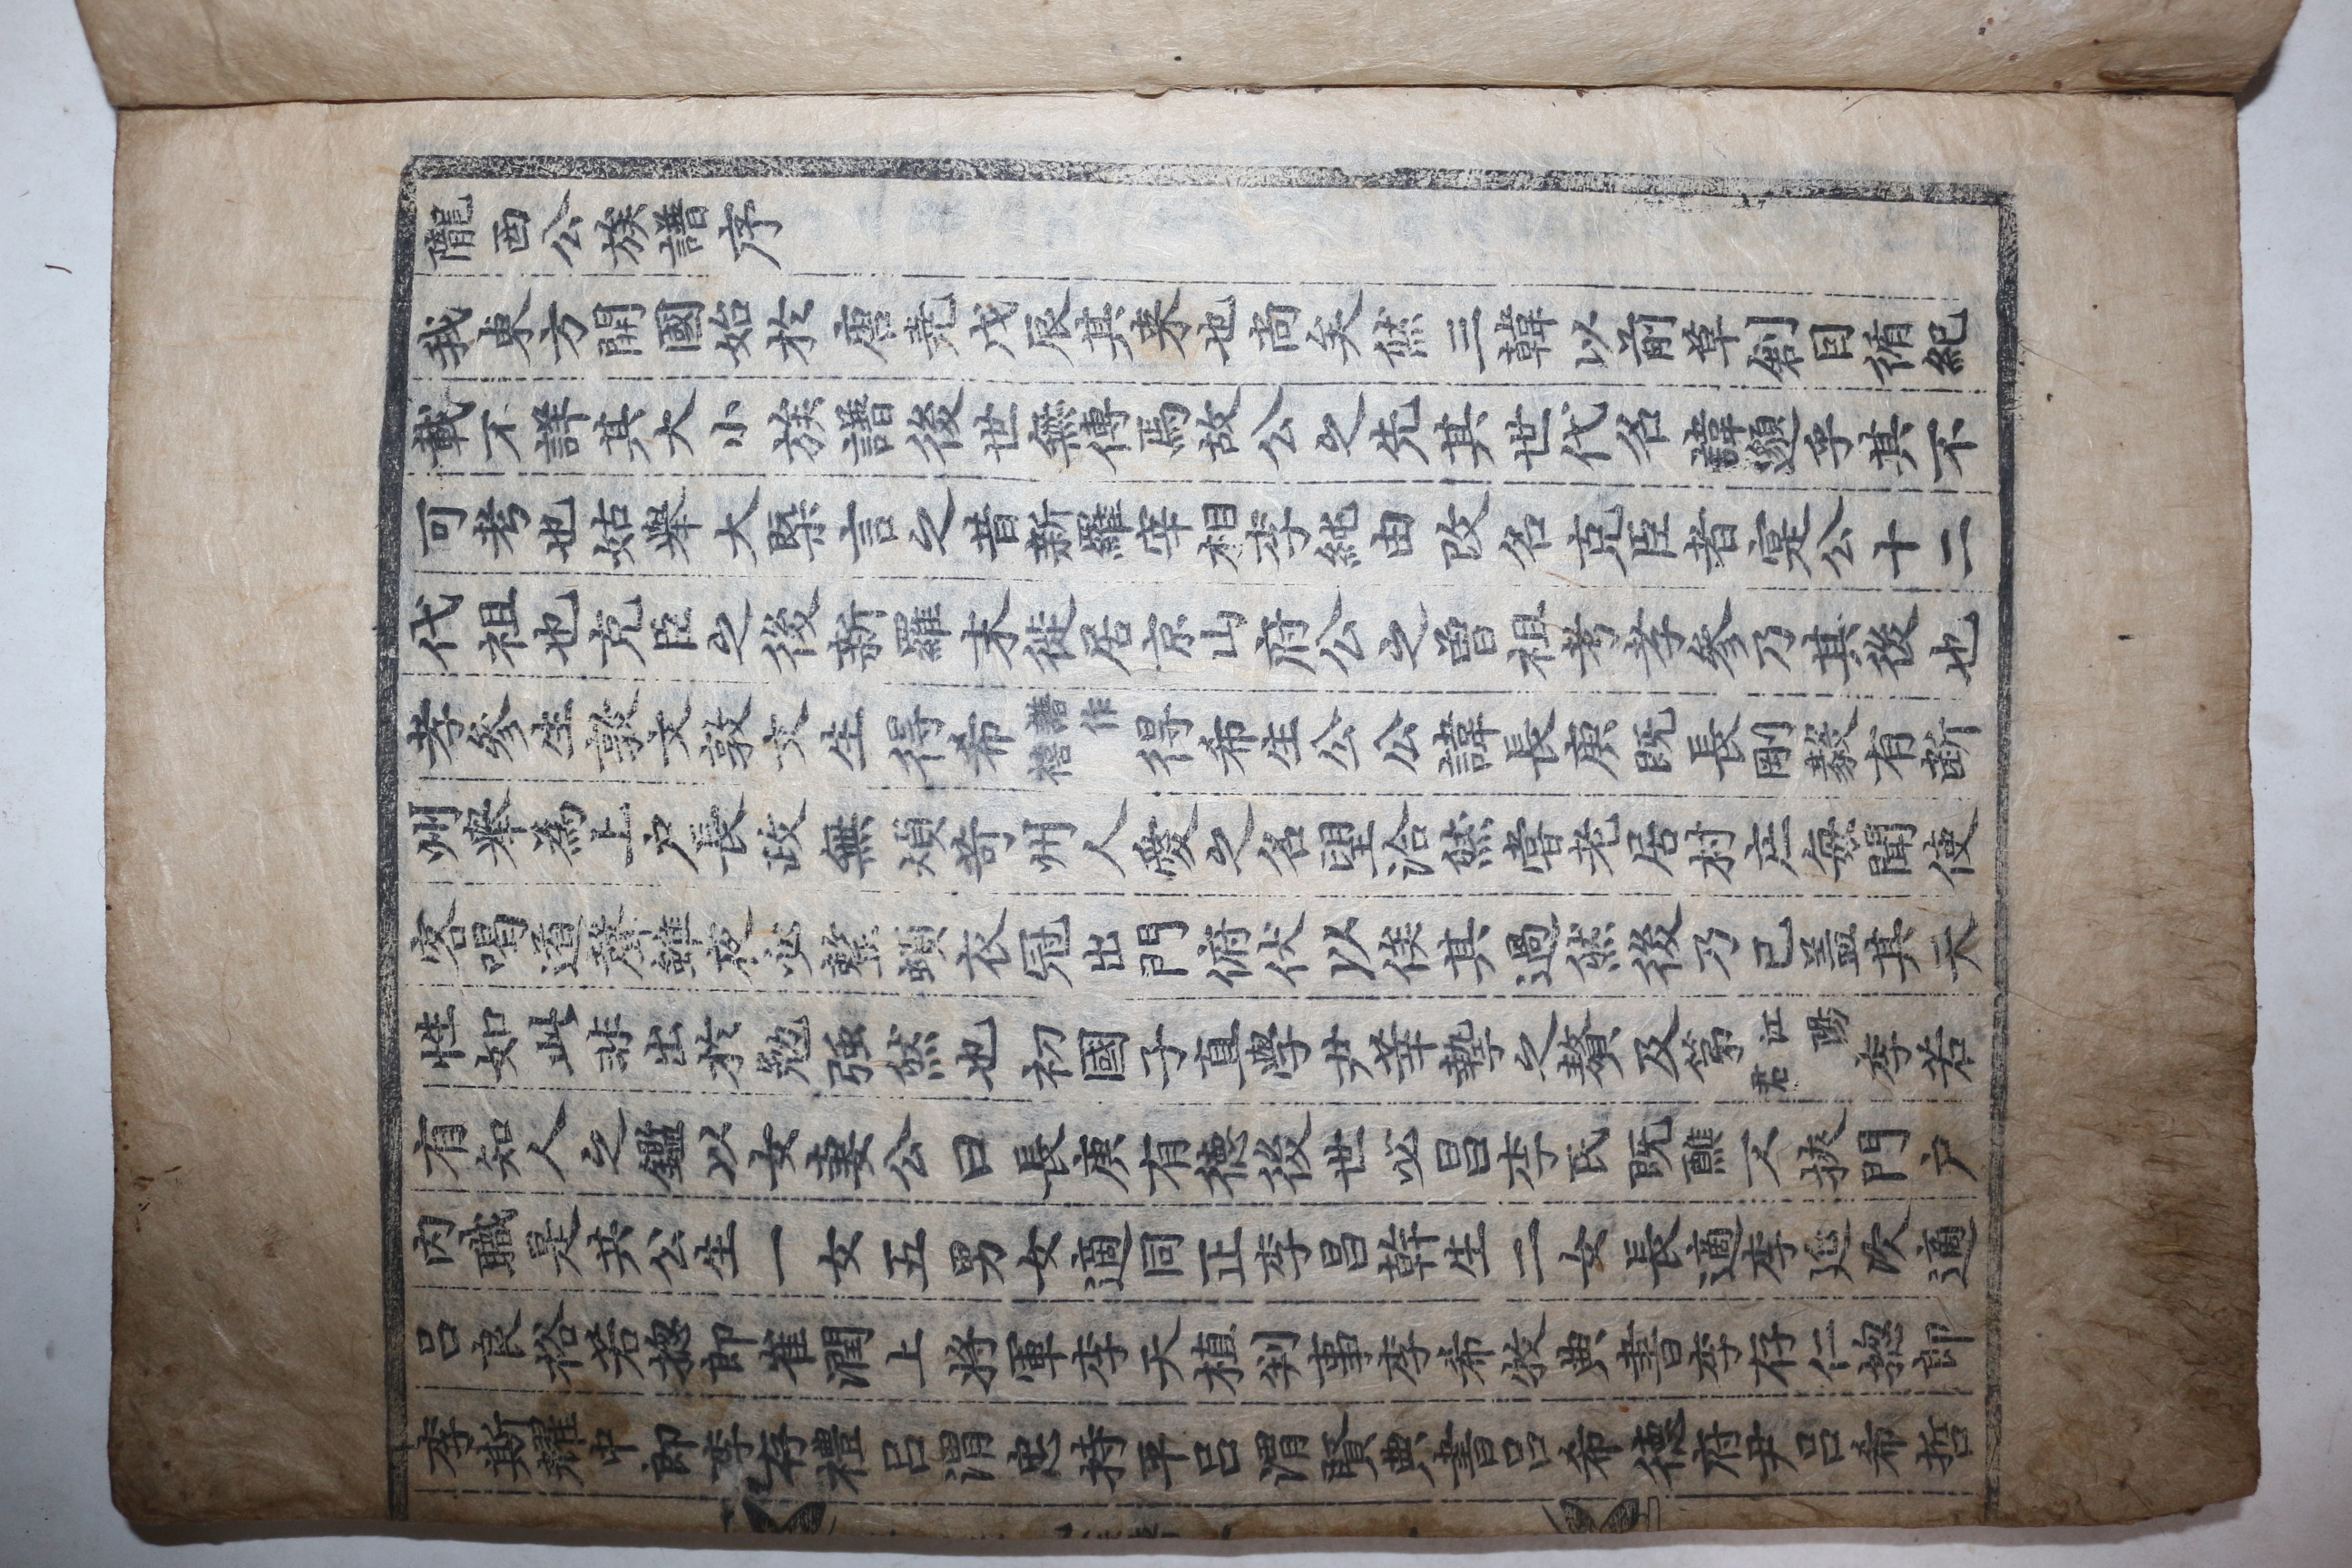 隴西公族譜序
我東方開國始於唐堯戊辰其來也尚矣然三韓以前草創因循紀
載不詳其大小族譜後世無傳焉故公之先其世代名諱邈乎其不
可考也姑擧大槩言之昔新羅宰相李純由改名克臣者寔公十二
代祖也克臣之後新羅末徙居京山府公之曾祖考孝參乃其後也
孝參生敦文敦文生得希 舊作禧 得希生公公諱長庚旣長剛毅有斷
州擧爲上戶長政無煩苛州人愛之名望洽然嘗老居村庄每聞使
客唱道聲雖夜必整頓衣冠出門俯伏以俟其過然後乃已盖其天
性如此非出於勉强然也初國子直學尹莘摯之贅及第 江陽君 李若
有知人之鑑以女妻公曰長庚有德後世必昌李氏旣醮又挾門戶
內職是共公生一女五男女適同正李昌幹生二女長適李 次適
呂良裕若摠郞崔潤上將軍李天植判事李希 典書李存仁摠郞
李斯 中郞李存禮呂渭忠持平呂渭賢典書呂希德府尹呂希哲